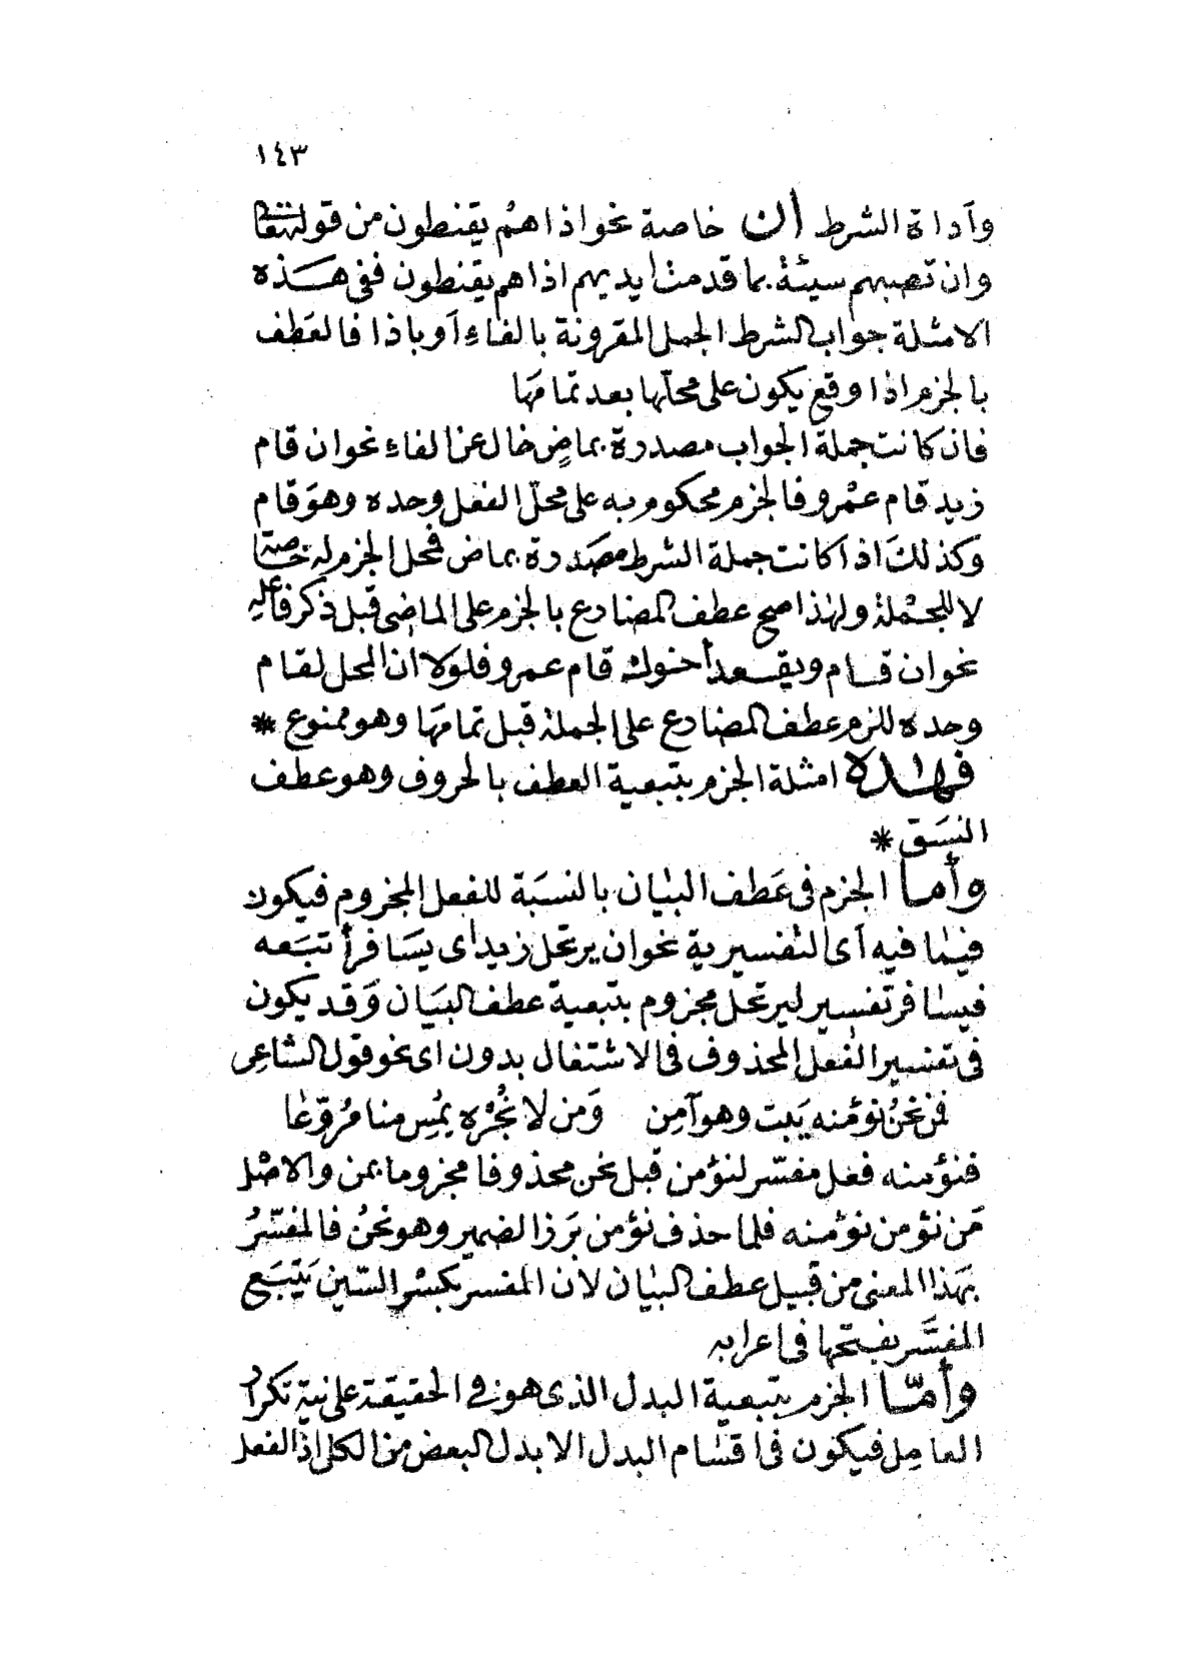 ١٤٣
وأداة الشرط إن خاصة نحو اذا هم يقنطون من قوله تعالى
وان تصبهم سيئة بما قدمت ايديهم اذا هم يقنطون ففي هذه
الامثلة جواب الشرط الجمل المقرونة بالفاء أو باذا فالعطف
بالجزم اذا وقع يكون على محلّها بعد تمامها
فان كانت جملة الجواب مصدرة بماضٍ خال عن الفاء نحو ان قام
زيد قام عمْرو فالجزم محكوم به على محلّ الفعل وحده وهوَ قام
وكذلكَ اذا كانت جملة الشرط مصَدرة بماض فمحل الجزم له خاصة
لا للجمْلة ولهٰذا صح عطف المضارع بالجزم على الماضى قبل ذكر فاعله
نحو ان قام ويقعد أخوك قام عمرو فلولا ان المحل لقام
وحده للزم عطف المضارع على الجملة قبل تمامها وهو ممنوع *
فهٰذه امثلة الجزم بتبعية العطف بالحروف وهو عطف
النسَق *
وأما الجزم فى عَطف البيَان بالنسبَة للفعل المجزوم فيكون
فيمَا فيه أى التفسيرية نحو ان يرتحل زيد اى يسَافر أتبَعه
فيسَافر تفسير ليرتحل مجزوم بتبعية عطف البيَان وَقد يكون
فى تفسير الفعل المحذوف فى الاشتغال بدون اى نحو قول الشاعِر
فمن نحنُ نؤمنه يَبت وهو آمِن وَمن لا نُجْره يُمْسِ منا مُروّعَا
فنؤمنه فعل مفسّر لنؤمن قبل نحن محذوفا مجزوما بمن والاصْل
مَن نؤمن نؤمنه فلما حذف نؤمن بَرز الضمير وهو نحنُ فالمفسّرُ
بهَذا المعنى من قبيل عطف البيان لأن المفسر بكسْر السّين يَتبَع
المفسَّر بفتحها فى اعرابه
وأمّا الجزم بتبعية البدل الذى هو فى الحقيقة على نية تكرار
العامِل فيكون فى اقسَام البدل الا بدل البعض من الكل اذ الفعل